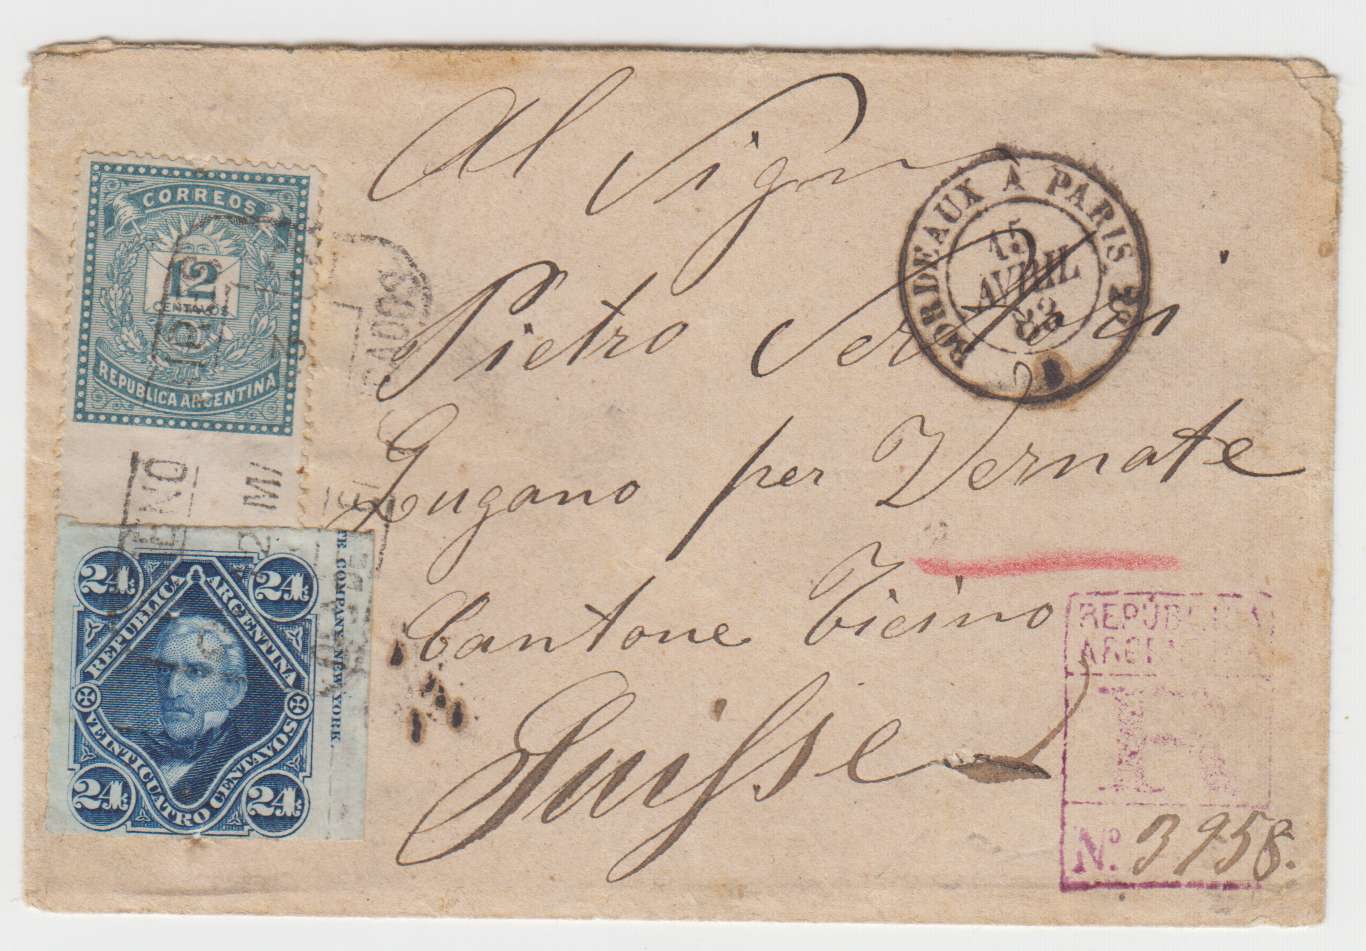 Al Sigr
Pietro
Lugano per Vernate
Cantone Ticino
Suisse
CORREOS
12
CENTAVOS
REPUBLICA ARGENTINA
24 24
REPUBLICA ARGENTINA
VEINTICUATRO CENTAVOS
24 24
TE COMPANY. NEW YORK.
BORDEAUX A PARIS 2°
15
AVRIL
83
REPÚBLICA
ARGENTINA
R
No. 3958.